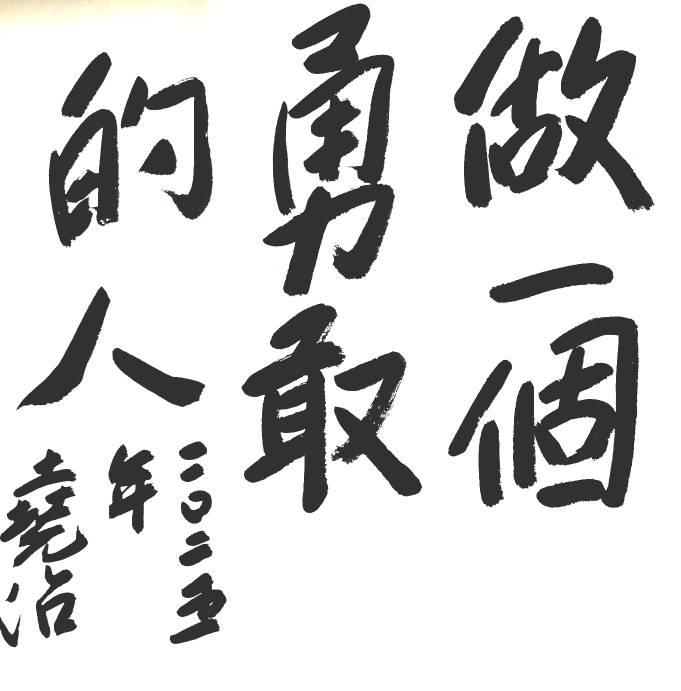 做一個
勇敢
的人
二〇二五
年
堯治